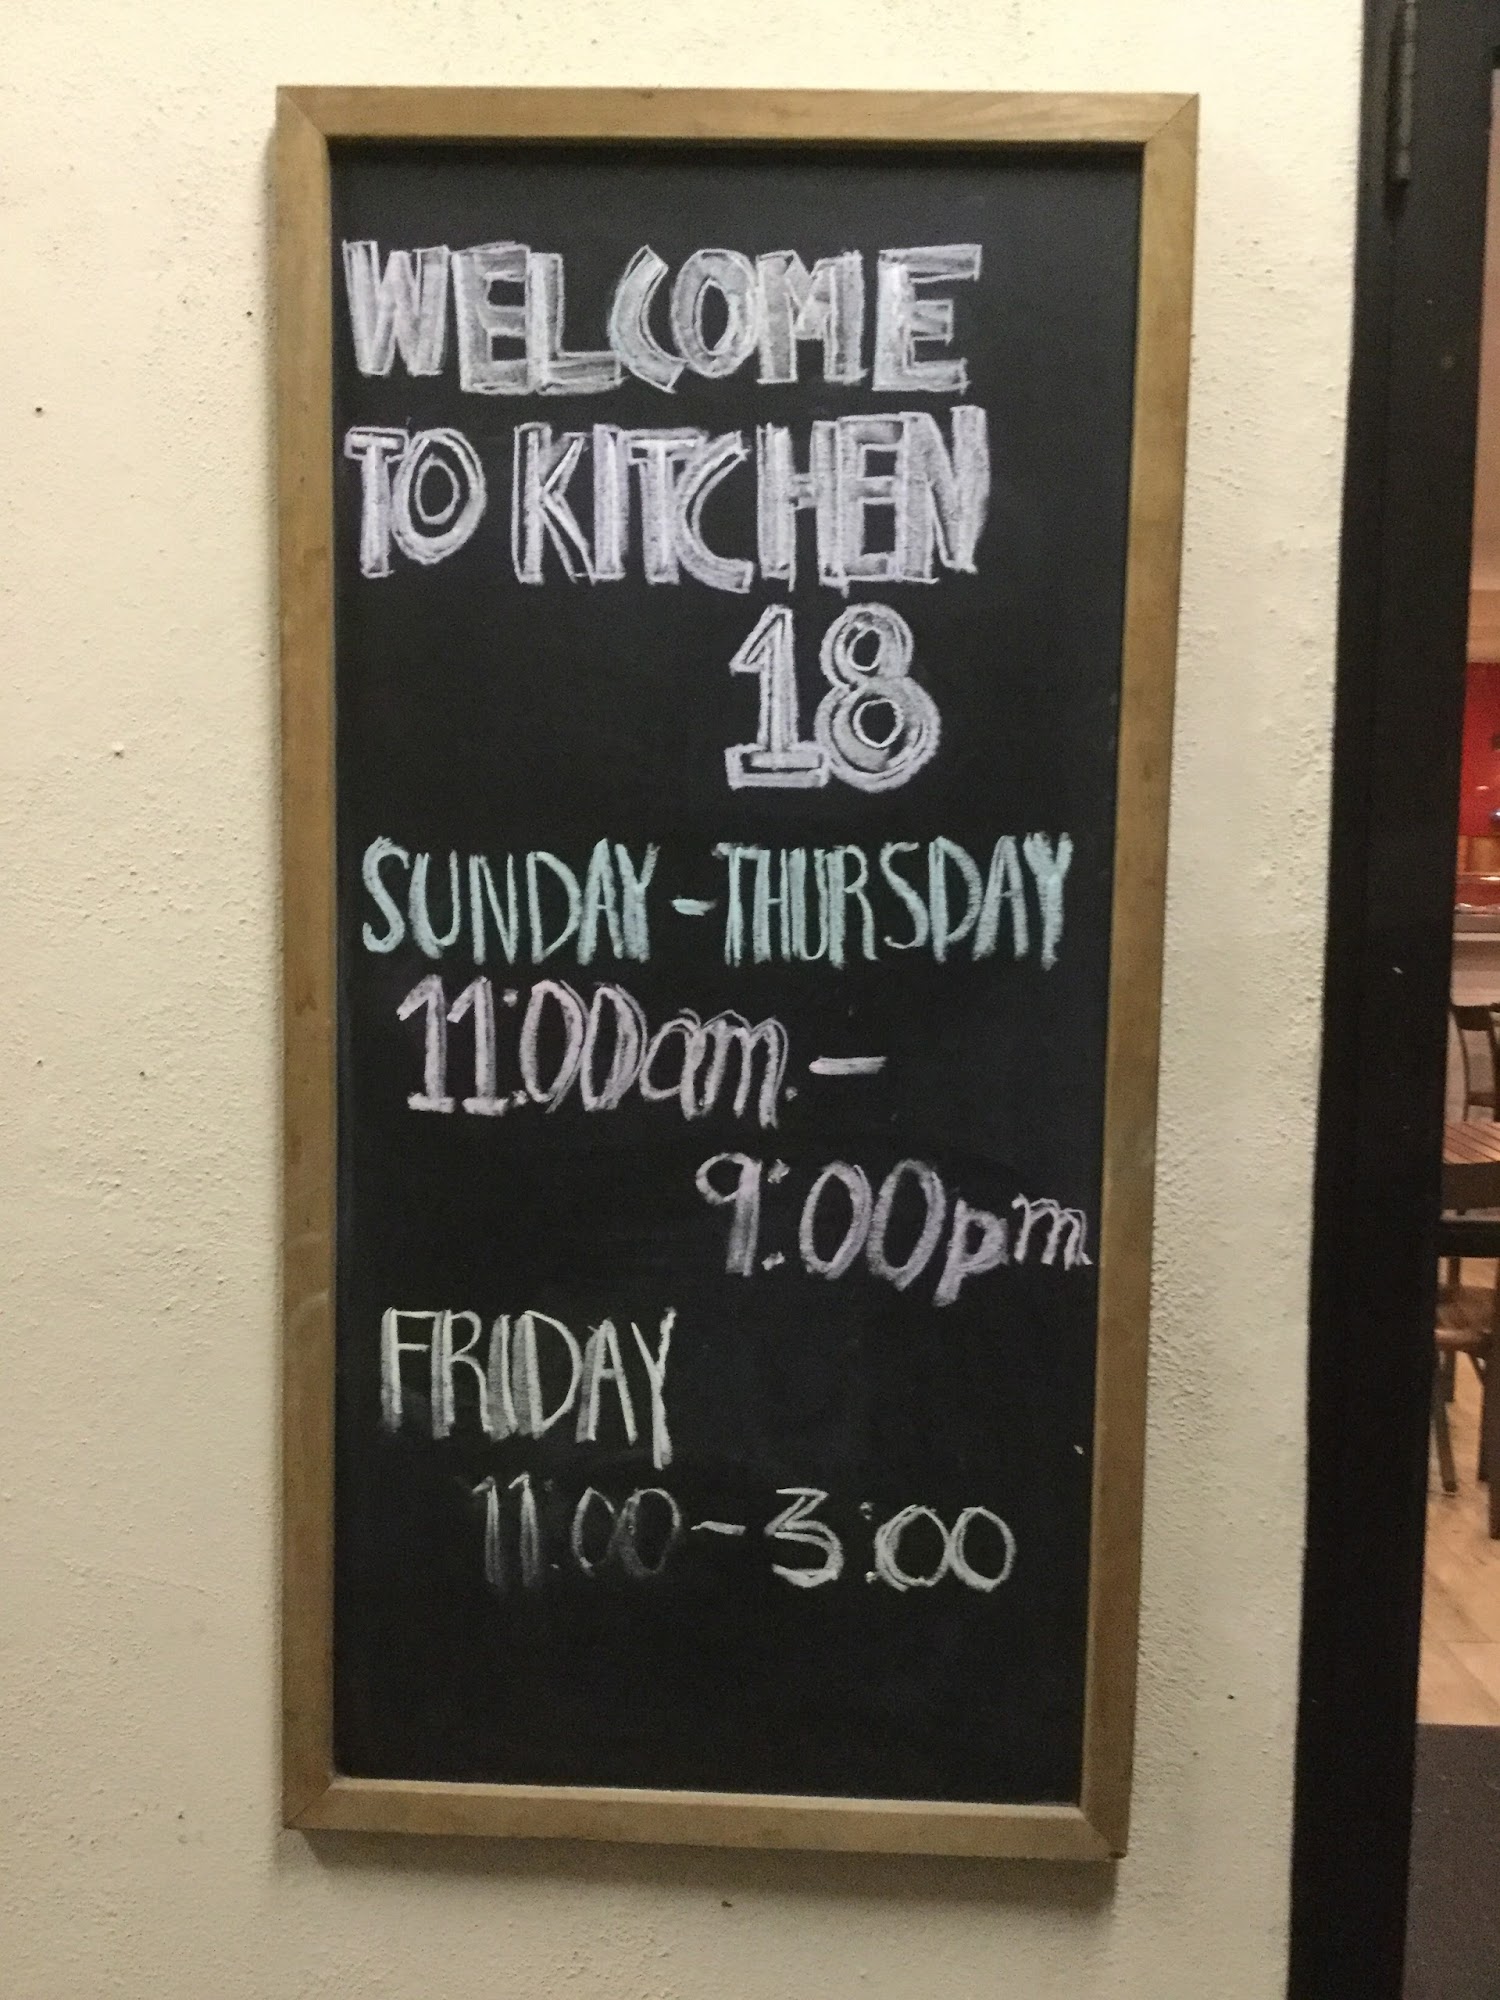 WELCOME
TO KITCHEN
18
SUNDAY - THURSDAY
11:00am. -
9:00pm.
FRIDAY
11:00 - 3:00